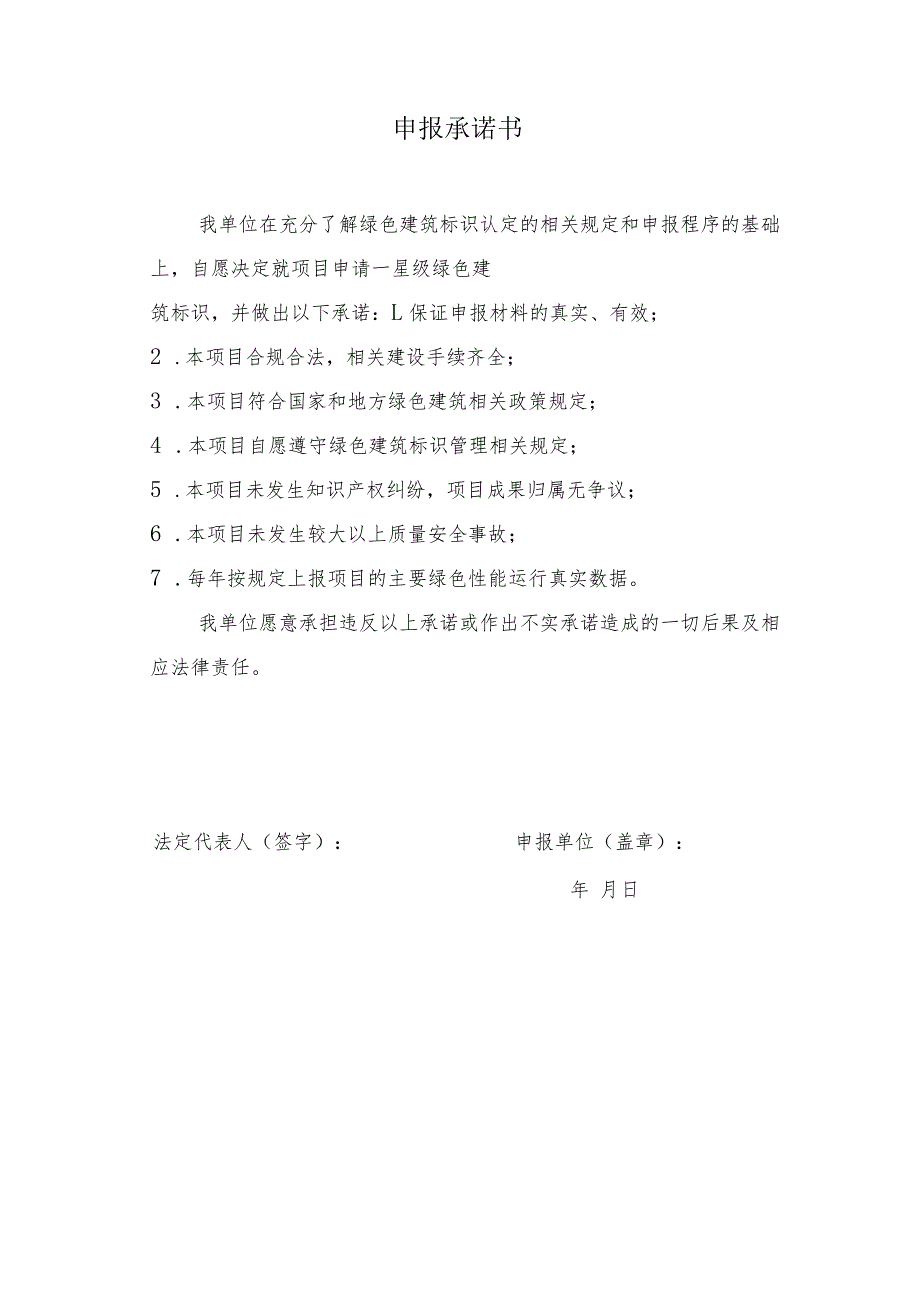 申报承诺书
我单位在充分了解绿色建筑标识认定的相关规定和申报程序的基础
上，自愿决定就项目申请一星级绿色建
筑标识，并做出以下承诺：L保证申报材料的真实、有效；
2 .本项目合规合法，相关建设手续齐全；
3 .本项目符合国家和地方绿色建筑相关政策规定；
4 .本项目自愿遵守绿色建筑标识管理相关规定；
5 .本项目未发生知识产权纠纷，项目成果归属无争议；
6 .本项目未发生较大以上质量安全事故；
7 .每年按规定上报项目的主要绿色性能运行真实数据。
我单位愿意承担违反以上承诺或作出不实承诺造成的一切后果及相
应法律责任。
法定代表人（签字）： 申报单位（盖章）：
年 月日